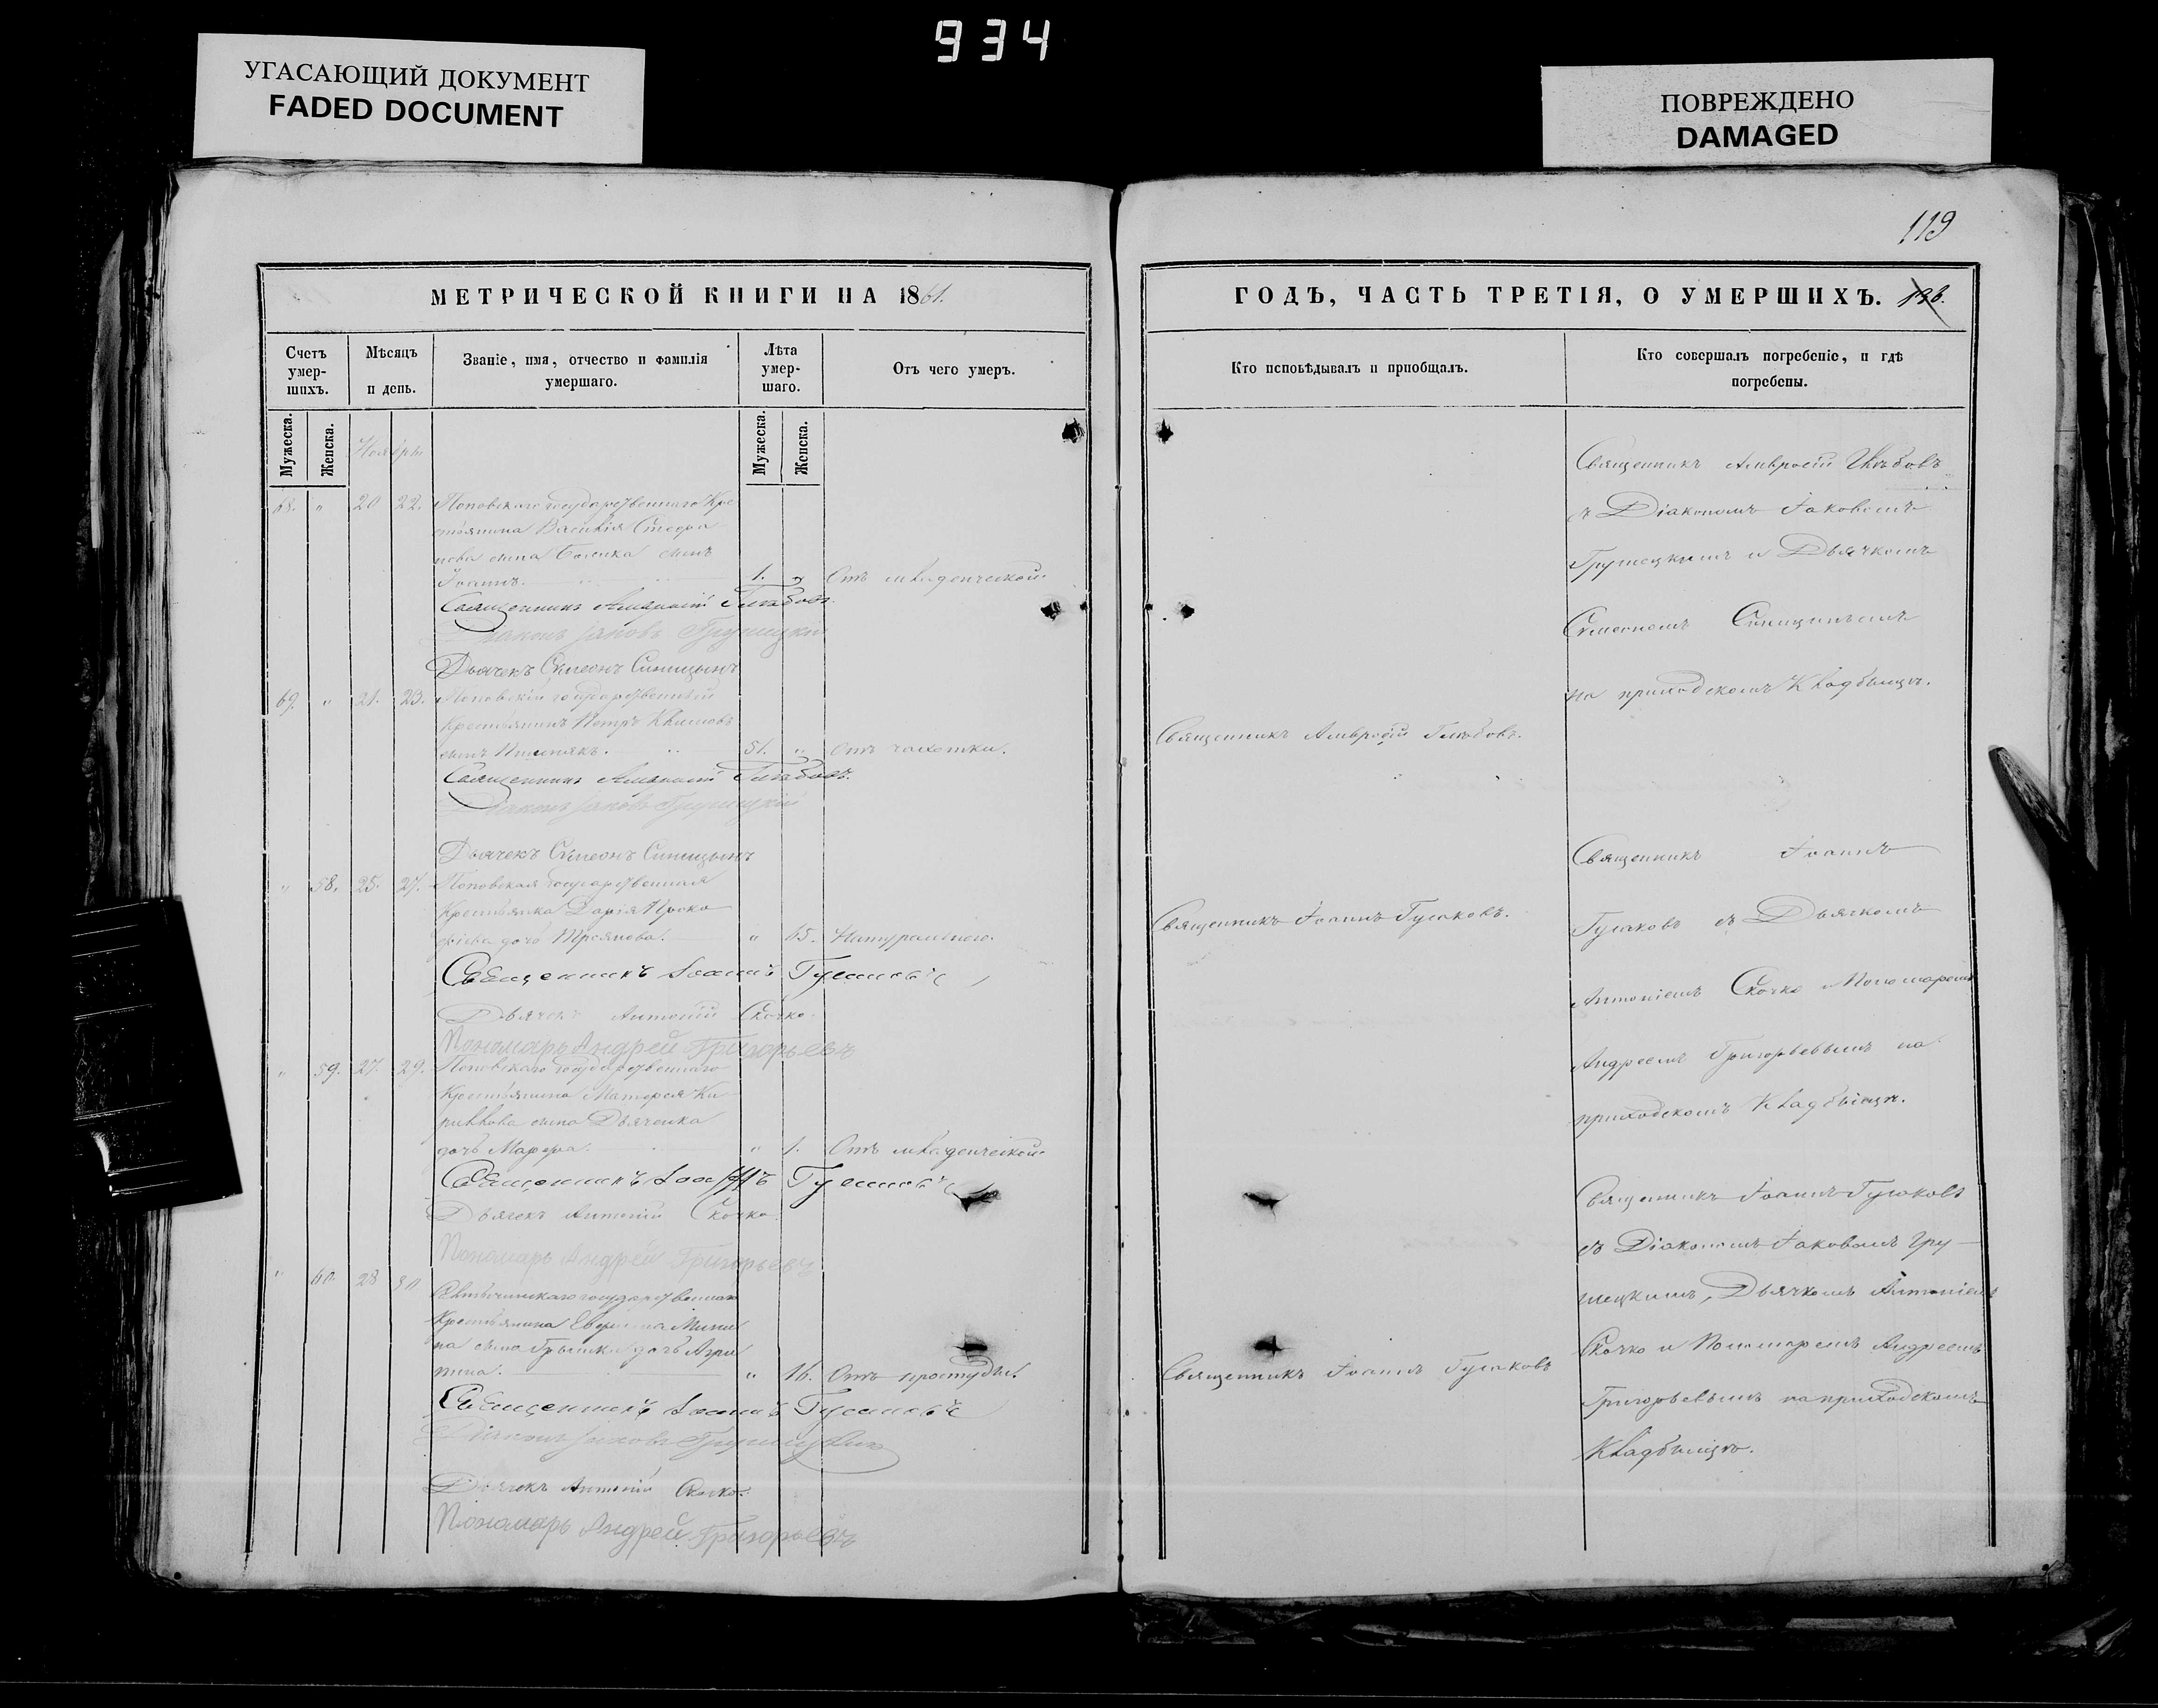 934
УГАСАЮЩИЙ ДОКУМЕНТ
FADED DOCUMENT
ПОВРЕЖДЕНО
DAMAGED
119
МЕТРИЧЕСКОЙ КНИГИ НА 1861.
Счетъ умер-шихъ.
Мѣсяцъ и день.
Званіе, имя, отчество и фамилія умершаго.
Лѣта умер-шаго.
Отъ чего умеръ.
Мужеска.
Женска.
Ноябрь
Мужеска.
Женска.
68. " 20 22. Поповскаго государственнаго Кре
стьянина Василія Стефа
нова сына сынъ
Іоаннъ. 1. " Отъ младенческой.
Священникъ Амвросій Глѣбовъ.
Діаконъ Іаковъ Грушецкій
Дьячекъ Сѵмеонъ Синицынъ
69. " 21. 23. Поповскій государственный
Крестьянинъ Петръ Климовъ
сынъ 51. " Отъ чахотки.
Священникъ Амвросій Глѣбовъ.
Діаконъ Іаковъ Грушецкій
Дьячекъ Сѵмеонъ Синицынъ
" 58. 25. 27. Поповская государственная
Крестьянка Дарія Проко
фіева дочь " 65. Натурально.
Священникъ Іоаннъ Гусаковъ
Дьячекъ Антоній Скочко.
Пономарь Андрей Григорьевъ
" 59. 27. 29. Поповскаго государственнаго
Крестьянина Матфея Ки
риллова сына Дьяченка
дочь Марфа. " 1. Отъ младенческой.
Священникъ Іоаннъ Гусаковъ
Дьячекъ Антоній Скочко.
Пономарь Андрей Григорьевъ
" 60 28 30 государственнаго
Крестьянина Мини
на сына дочь Агри
пина. " 16. Отъ простуды.
Священникъ Іоаннъ Гусаковъ
Діаконъ Іаковъ Грушецкій
Дьячекъ Антоній Скочко.
Пономарь Андрей Григорьевъ
ГОДЪ, ЧАСТЬ ТРЕТІЯ, О УМЕРШИХЪ.
Кто исповѣдывалъ и пріобщалъ.
Кто совершалъ погребеніе, и гдѣ погребены.
Священникъ Амвросій Глѣбовъ
съ Діакономъ Іаковомъ
Грушецкимъ и Дьячкомъ
Сѵмеономъ Синицинымъ
на приходскомъ кладбищѣ.
Священникъ Амвросій Глѣбовъ.
Священникъ Іоаннъ
Священникъ Іоаннъ Гусаковъ.
Гусаковъ съ Дьячкомъ
Антоніемъ Скочко и Пономаремъ
Андреемъ Григорьевымъ на
приходскомъ кладбищѣ.
Священникъ Іоаннъ Гусаковъ
съ Діакономъ Іаковомъ Гру
шецкимъ, Дьячкомъ Антоніемъ
Скочко и Пономаремъ Андреемъ
Священникъ Іоаннъ Гусаковъ
Григорьевымъ на приходскомъ
кладбищѣ.